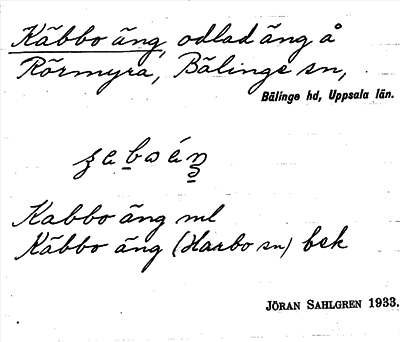 Käbbo äng, odlad äng å
Rörmyra, Bälinge sn,
Bälinge hd, Uppsala län.
Kabbo äng ml
Käbbo äng (Harbo sn) bek
JÖRAN SAHLGREN 1933.